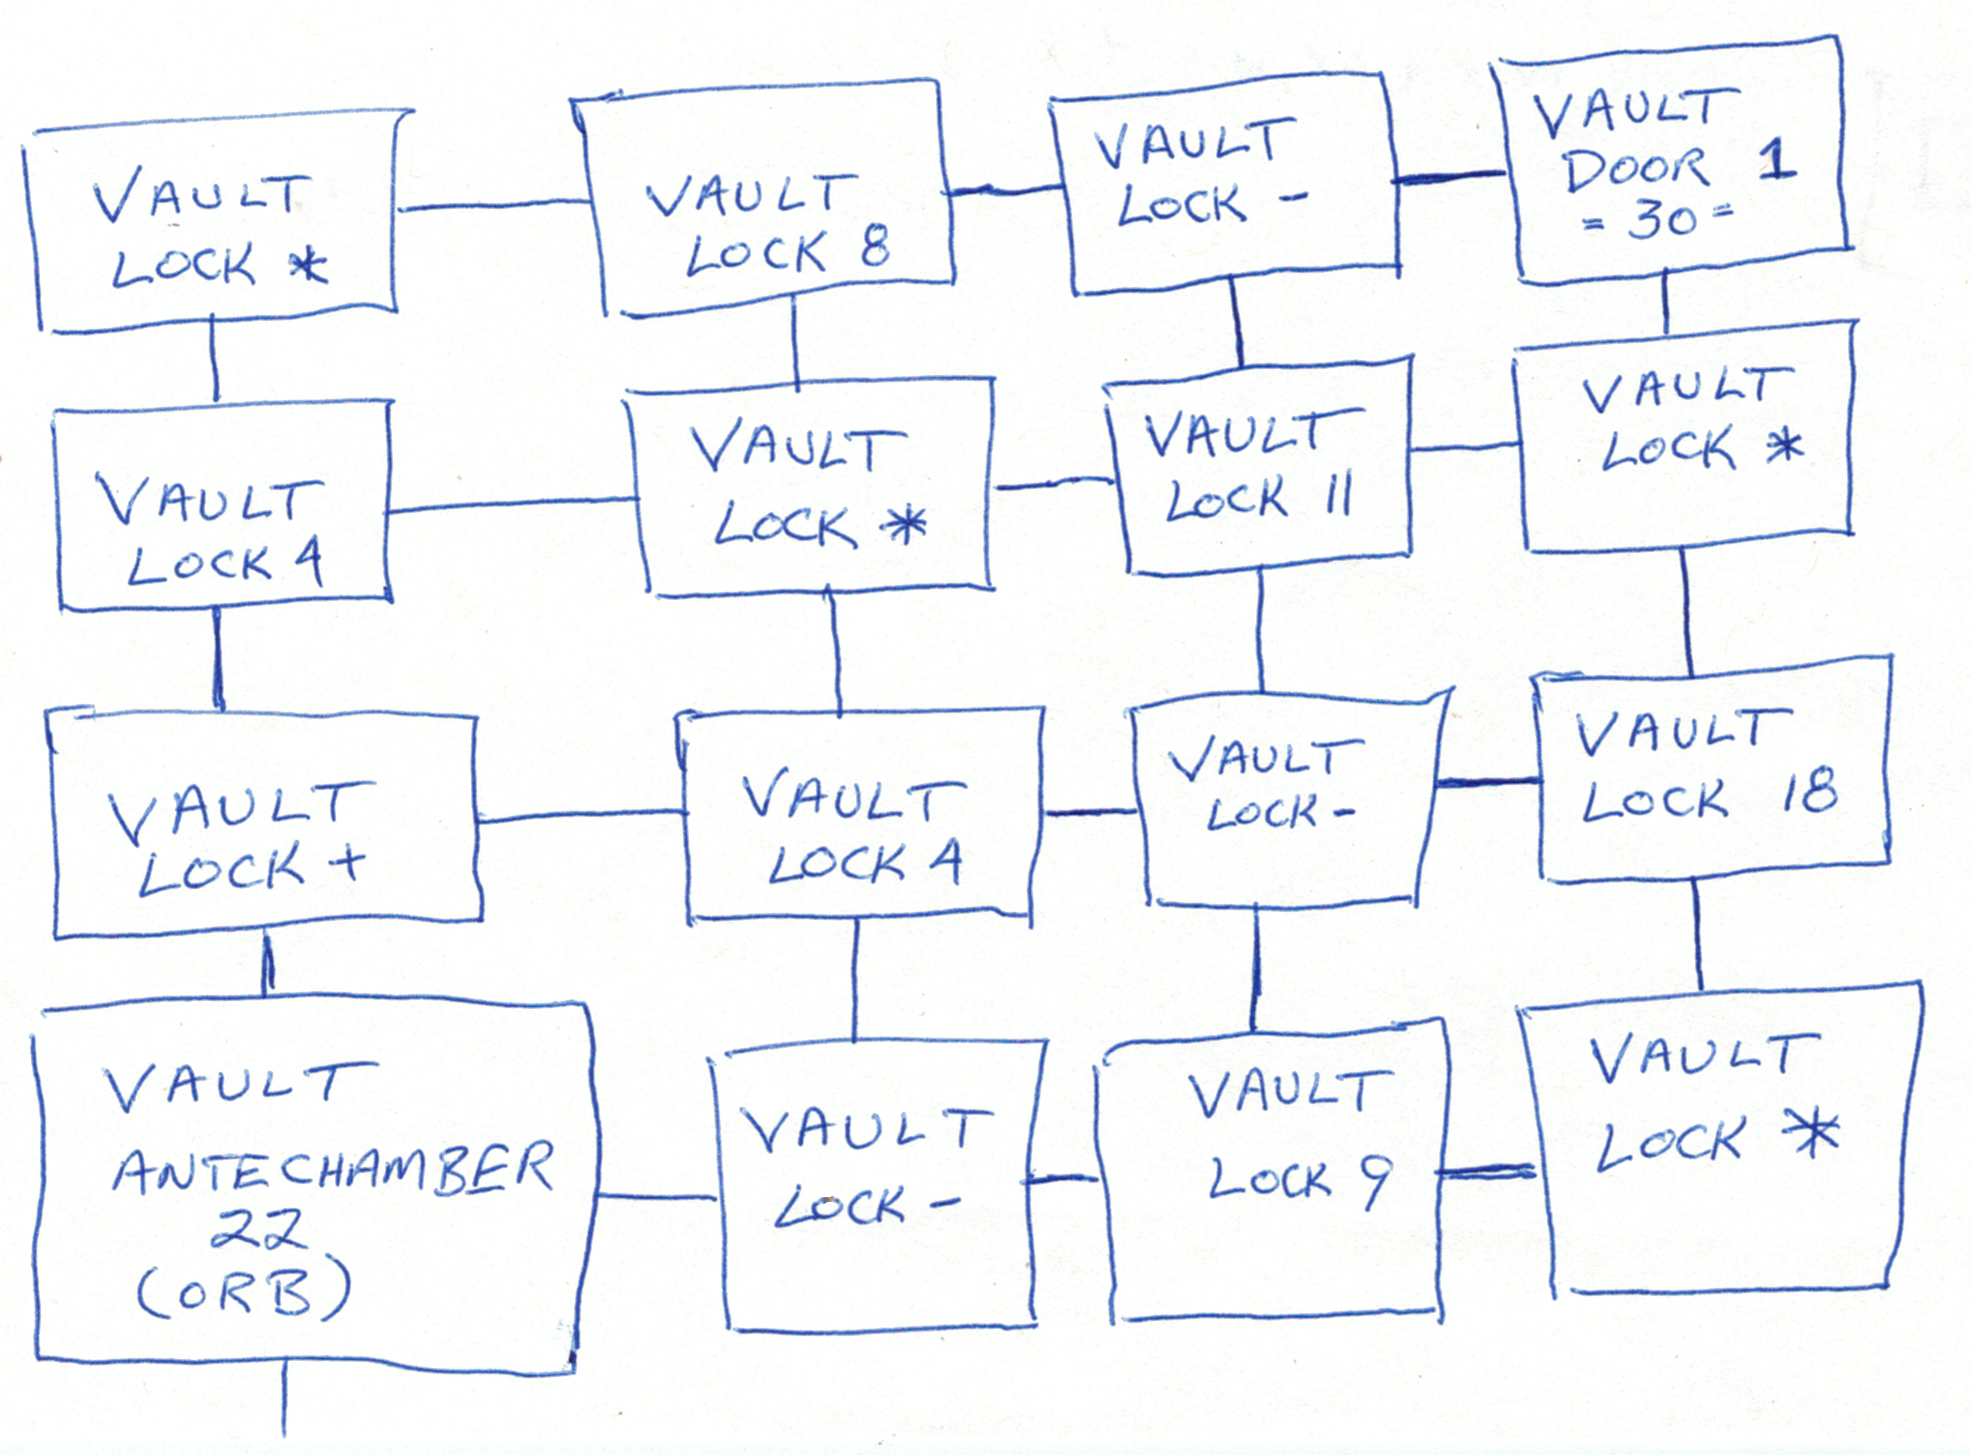 VAULT
LOCK *
VAULT
LOCK 8
VAULT
LOCK -
VAULT
DOOR 1
= 30 =
VAULT
LOCK 4
VAULT
LOCK *
VAULT
LOCK 11
VAULT
LOCK *
VAULT
LOCK +
VAULT
LOCK 4
VAULT
LOCK -
VAULT
LOCK 18
VAULT
ANTECHAMBER
22
(ORB)
VAULT
LOCK -
VAULT
LOCK 9
VAULT
LOCK *